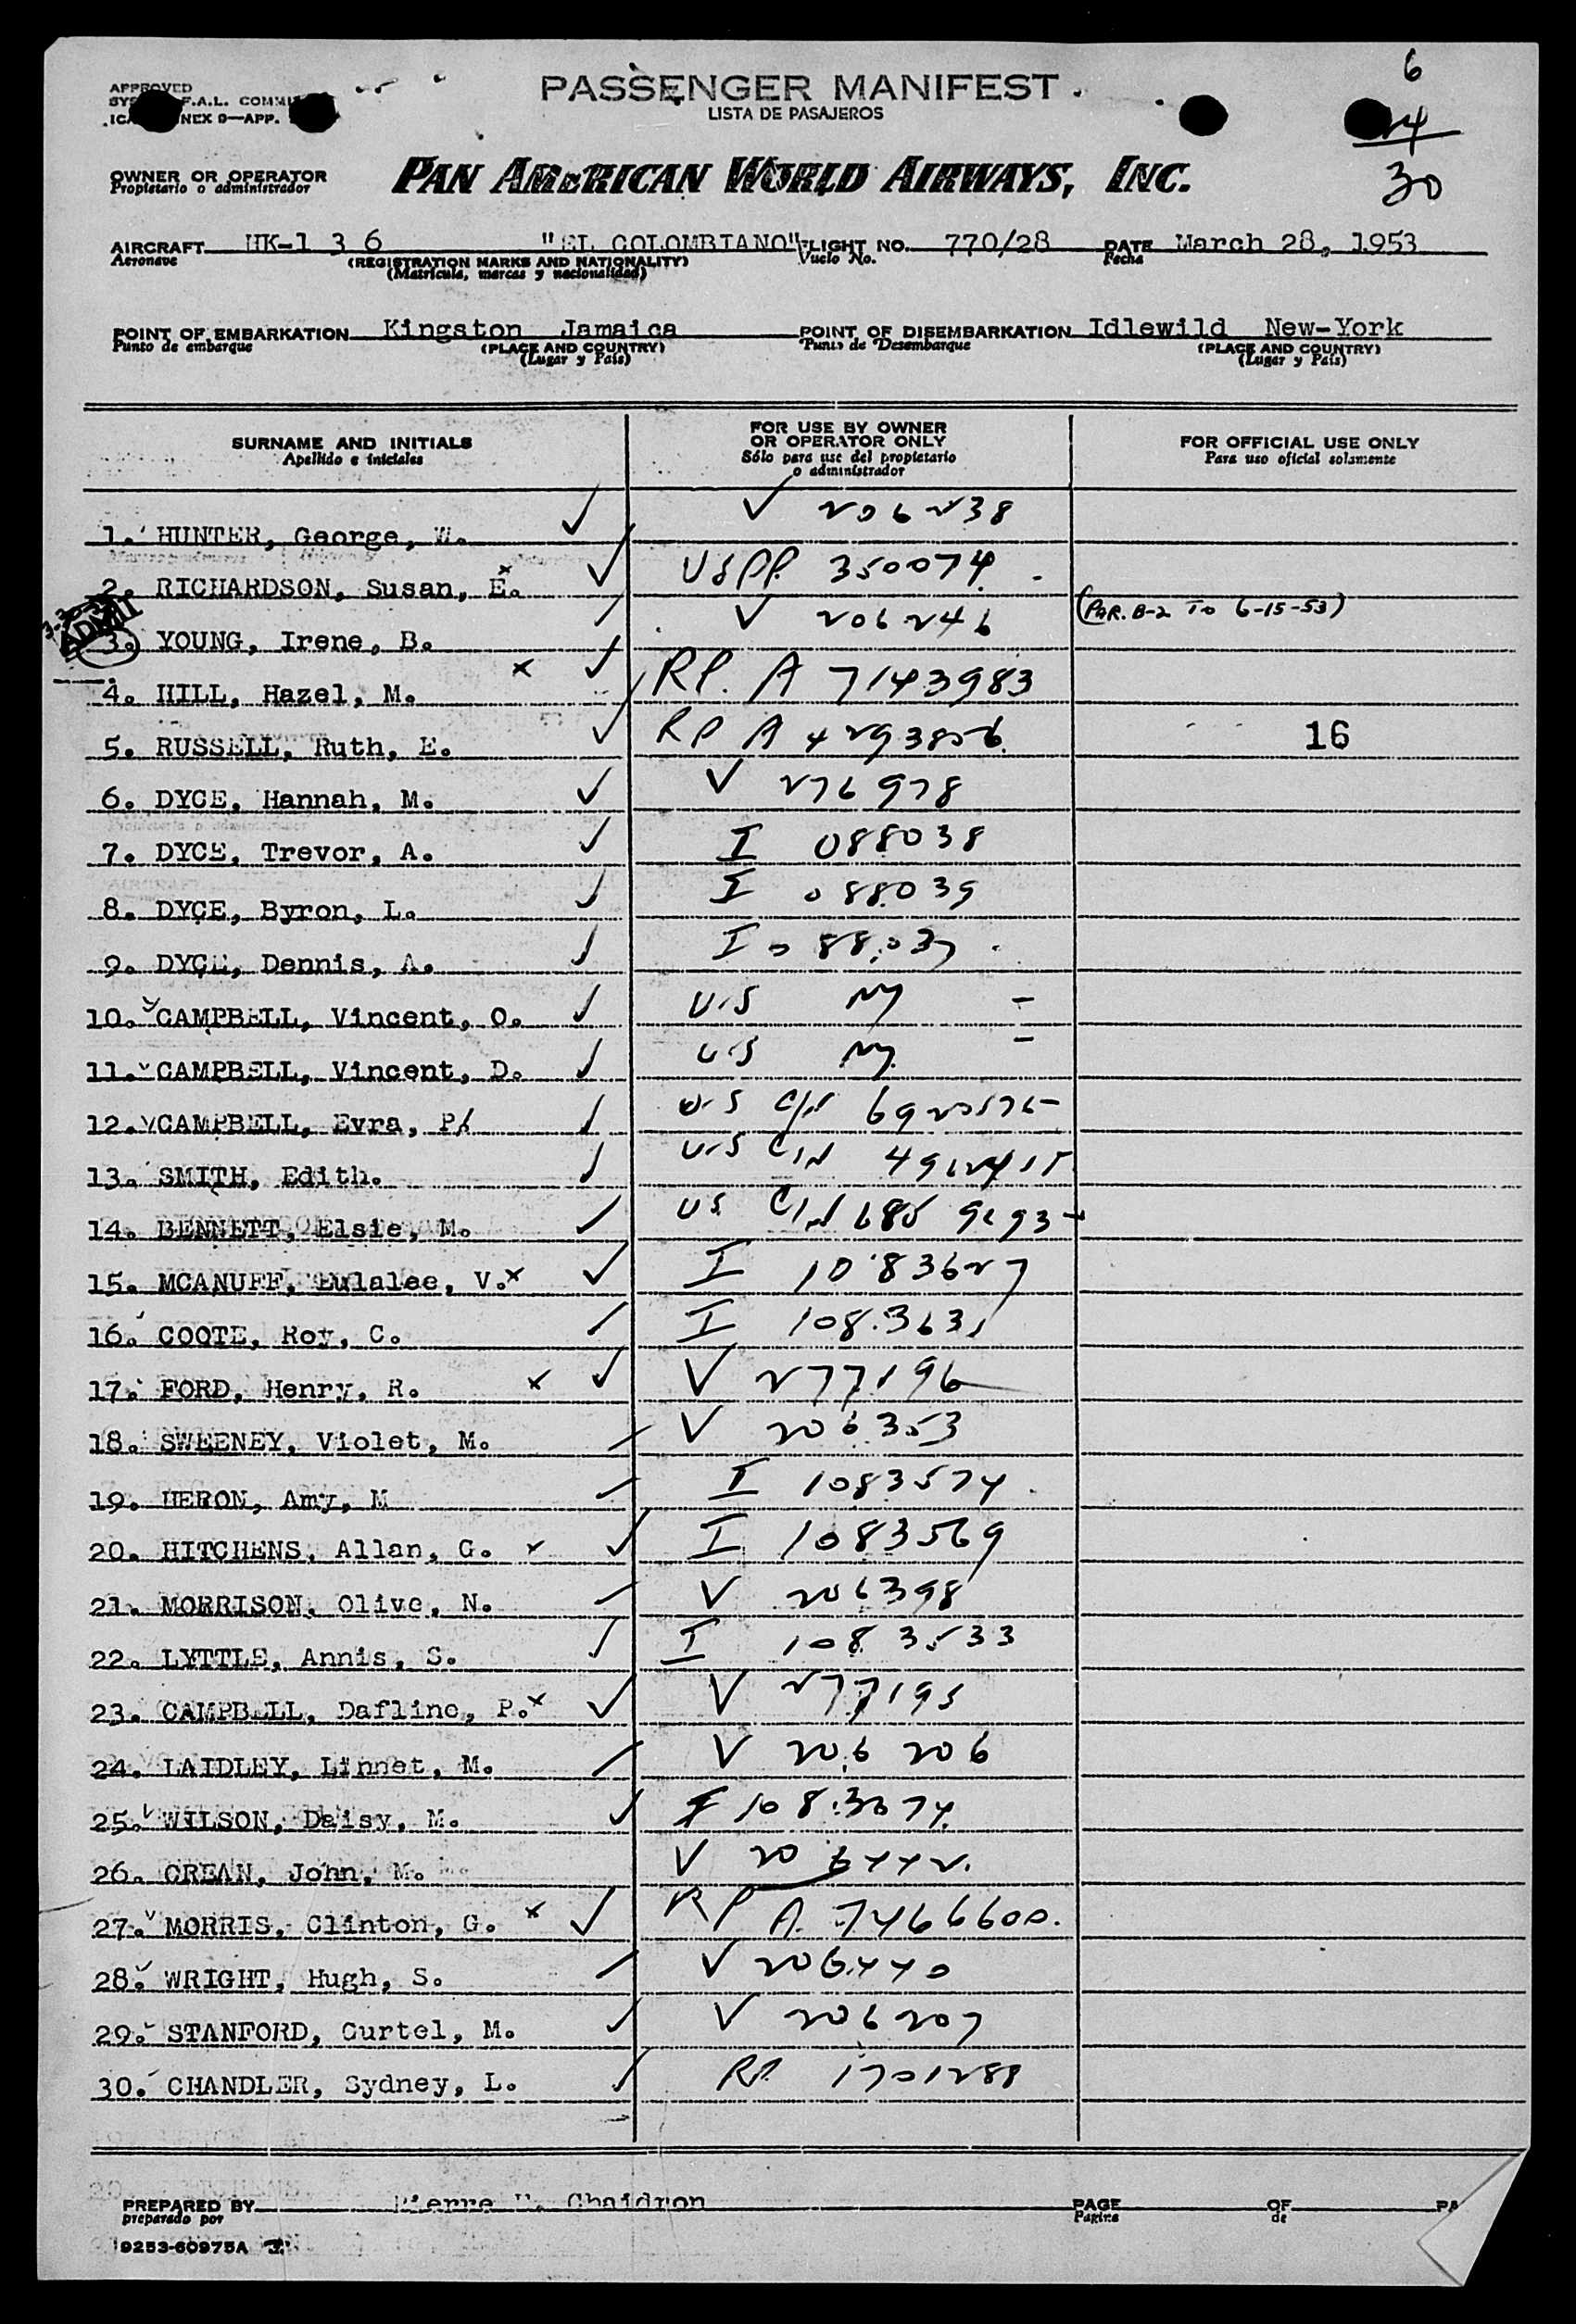 6
24
30
APPROVED
F.A.L.
NEX 9—APP.
PASSENGER MANIFEST
LISTA DE PASAJEROS
OWNER OR OPERATOR
Propietario o administrador
PAN AMERICAN WORLD AIRWAYS, INC.
AIRCRAFT HK-1 3 6 "EL COLOMBIANO" FLIGHT NO. 770/28 DATE March 28, 1953
Aeronave (REGISTRATION MARKS AND NATIONALITY) Vuelo No. Fecha
(Matrícula, marcas y nacionalidad)
POINT OF EMBARKATION Kingston Jamaica POINT OF DISEMBARKATION Idlewild New-York
Punto de embarque (PLACE AND COUNTRY) Punto de Desembarque (PLACE AND COUNTRY)
(Lugar y País) (Lugar y País)
SURNAME AND INITIALS FOR USE BY OWNER OR OPERATOR ONLY FOR OFFICIAL USE ONLY
Apellido e iniciales Sólo para use del propietario o administrador Para uso oficial solamente
1. HUNTER, George, W. V 206238
2. RICHARDSON, Susan, E. USPP. 350074
ADMIT
3. YOUNG, Irene, B. V 206246 (PAR. B-2 TO 6-15-53)
4. HILL, Hazel, M. RP. A 7143983
5. RUSSELL, Ruth, E. RP A 4293856 16
6. DYCE, Hannah, M. V 276978
7. DYCE, Trevor, A. I 088038
8. DYCE, Byron, L. I 088039
9. DYCE, Dennis, A. I 088037
10. CAMPBELL, Vincent, O. U.S NY -
11. CAMPBELL, Vincent, D. U.S NY -
12. CAMPBELL, Evra, P. U.S C/N
13. SMITH, Edith. U.S C/N
14. BENNETT, Elsie, M. US C/N
15. MCANUFF, Eulalee, V. I 1083627
16. COOTE, Roy, C. I 1083631
17. FORD, Henry, R. V 277196
18. SWEENEY, Violet, M. V 206353
19. HERON, Amy, M I 1083574
20. HITCHENS, Allan, G. I 1083569
21. MORRISON, Olive, N. V 206398
22. LYTTLE, Annis, S. I 1083533
23. CAMPBELL, Dafline, P. V 277195
24. LAIDLEY, Linnet, M. V 206206
25. WILSON, Daisy, M. I
26. CREAN, John, M. V 206442
27. MORRIS, Clinton, G. RP A 7466600.
28. WRIGHT, Hugh, S. V 206440
29. STANFORD, Curtel, M. V 206207
30. CHANDLER, Sydney, L. RP. 1701288
PREPARED BY Pierre Chaidron PAGE OF
preparado por Pagina de
9253-60975A